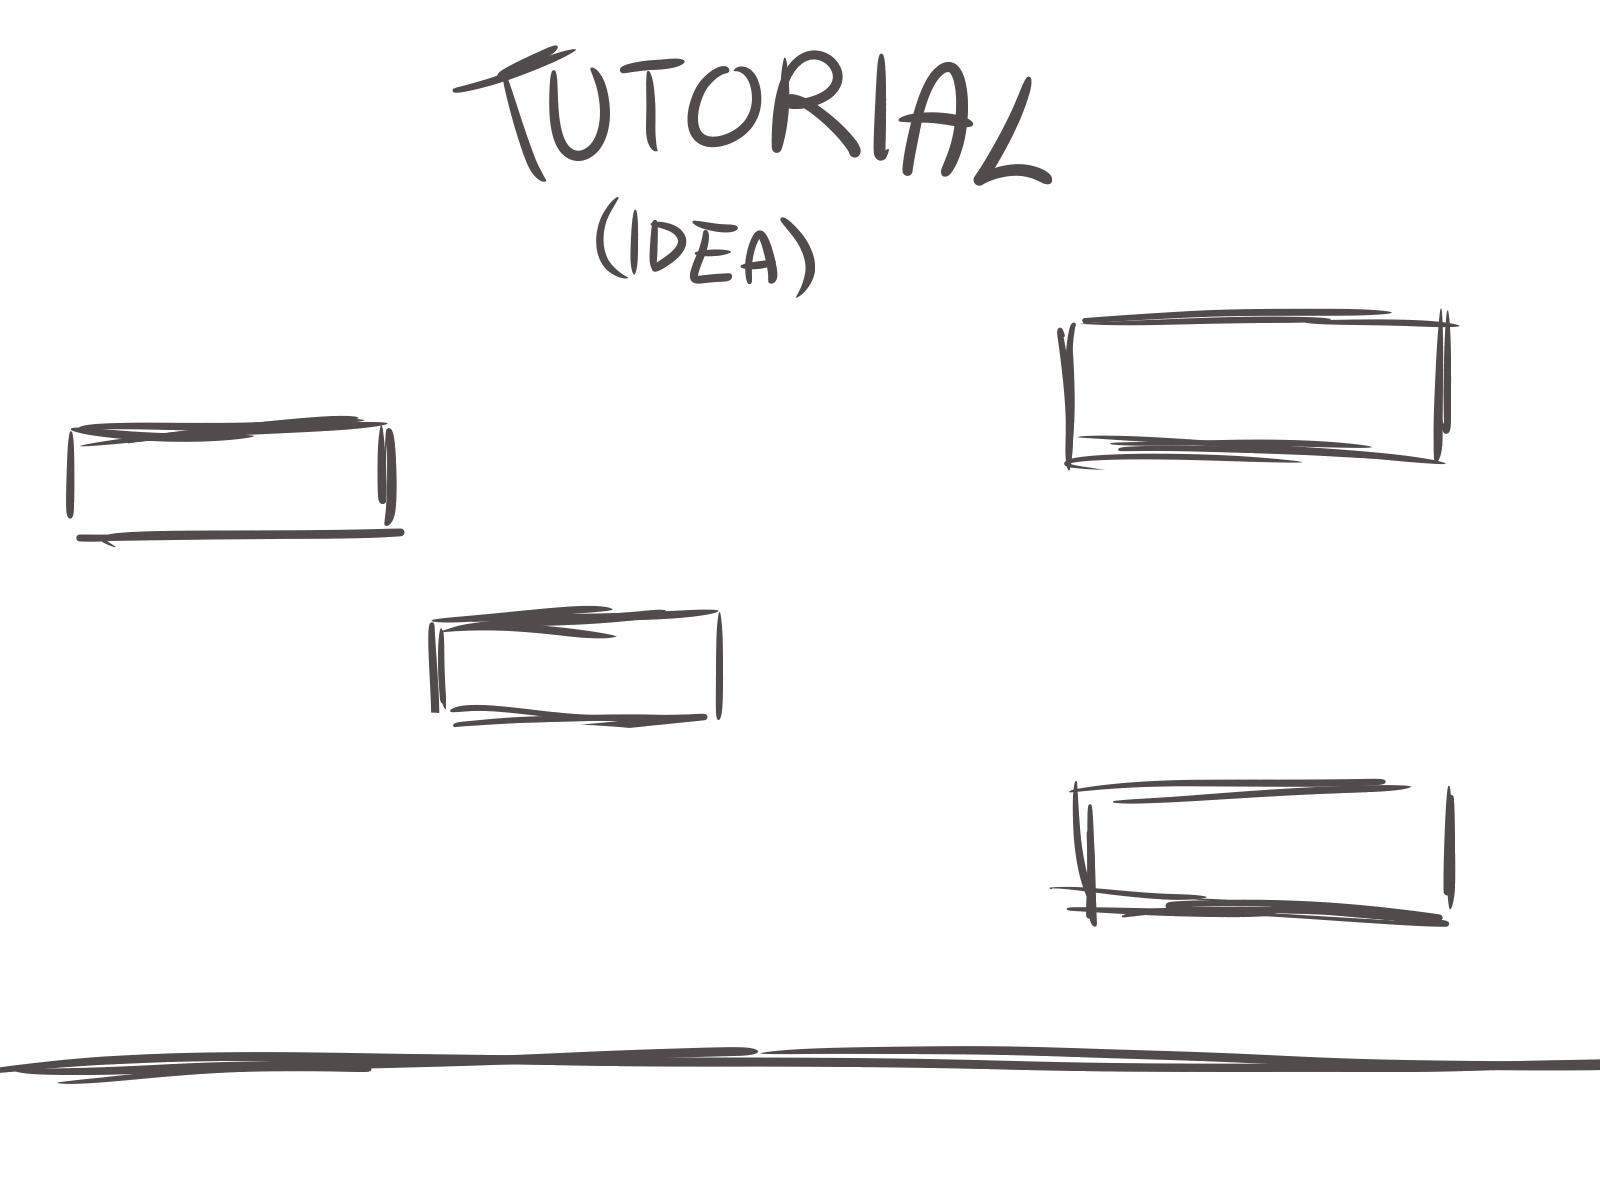 TUTORIAL
(IDEA)